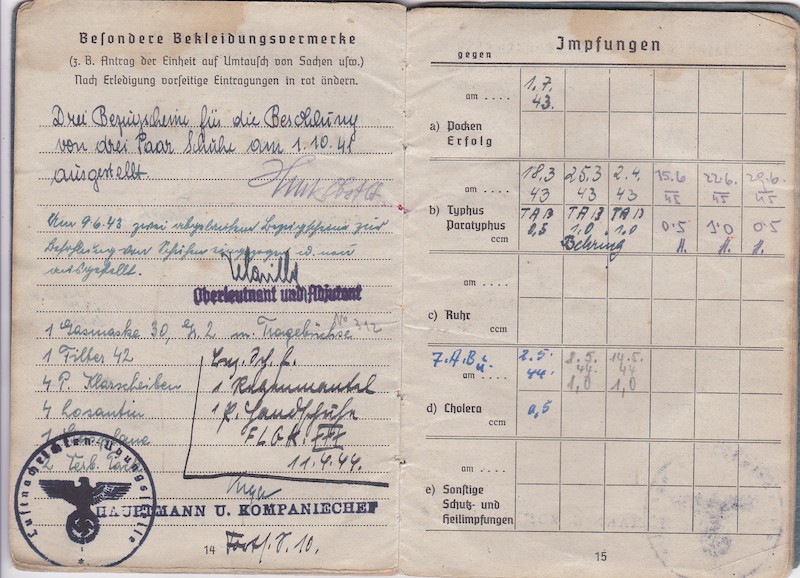 Besondere Bekleidungsvermerke
(z. B. Antrag der Einheit auf Umtausch von Sachen usw.)
Nach Erledigung vorseitige Eintragungen in rot ändern.
Drei Bezugscheine für die Besohlung
von drei Paar Schuhe am 1.10.41
ausgestellt.
Am 9.6.43 zwei Bezugscheine zur
Besohlung von Schuhen u. neu
ausgestellt.
Oberleutnant und Adjutant
1 Gasmaske 30, Gr. 2 m. Tragebüchse
No 312
1 Filter 42
4 P. Klarscheiben
4 Losantin
1 Regenmantel
1 P. Handschuhe
11.4.44.
Luftnachrichten
HAUPTMANN U. KOMPANIECHEF
14 Forts. S. 10.
gegen Impfungen
am .... 1.7. 43.
a) Pocken
Erfolg
am .... 18.3 43 25.3 43 2.4. 43 15.6 45 22.6. 45 29.6. 45
b) Typhus TAB TAB TAB
Paratyphus 0,5 1,0 1.0 0.5 1.0 0.5
ccm Behring H. H. H.
am ....
c) Ruhr
ccm
T.A.B. u.
am .... 2.5. 44. 8.5. 44 14.5. 44
1,0 1,0
d) Cholera 0,5
ccm
am ....
e) Sonstige
Schutz- und
Heilimpfungen
15